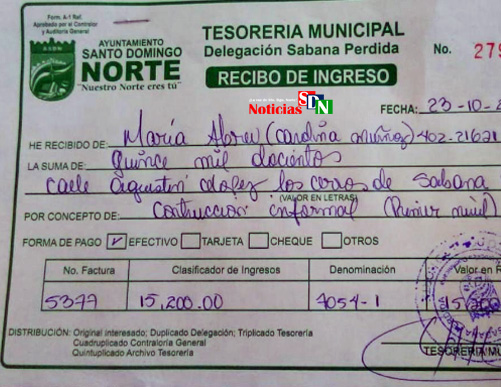 Form. A-1 Ref.
Aprobado por el Contralor
y Auditoría General
AYUNTAMIENTO
SANTO DOMINGO
NORTE
"Nuestro Norte eres tú"
TESORERIA MUNICIPAL
Delegación Sabana Perdida
RECIBO DE INGRESO
No. 279
Noticias SDN
FECHA: 23-10-2
HE RECIBIDO DE: María Abreu (Cardina muñoz) 402-21621
LA SUMA DE: quince mil docientos
calle Agustin los cerros de Sabana
(VALOR EN LETRAS)
POR CONCEPTO DE: Contruccion informal (Primer nivel)
FORMA DE PAGO ✓ EFECTIVO TARJETA CHEQUE OTROS
No. Factura Clasificador de Ingresos Denominación Valor en R
5377 15,200.00 7054-1
DISTRIBUCIÓN: Original interesado; Duplicado Delegación; Triplicado Tesorería
Cuadruplicado Contraloría General
Quintuplicado Archivo Tesorería
TESORERIA MU